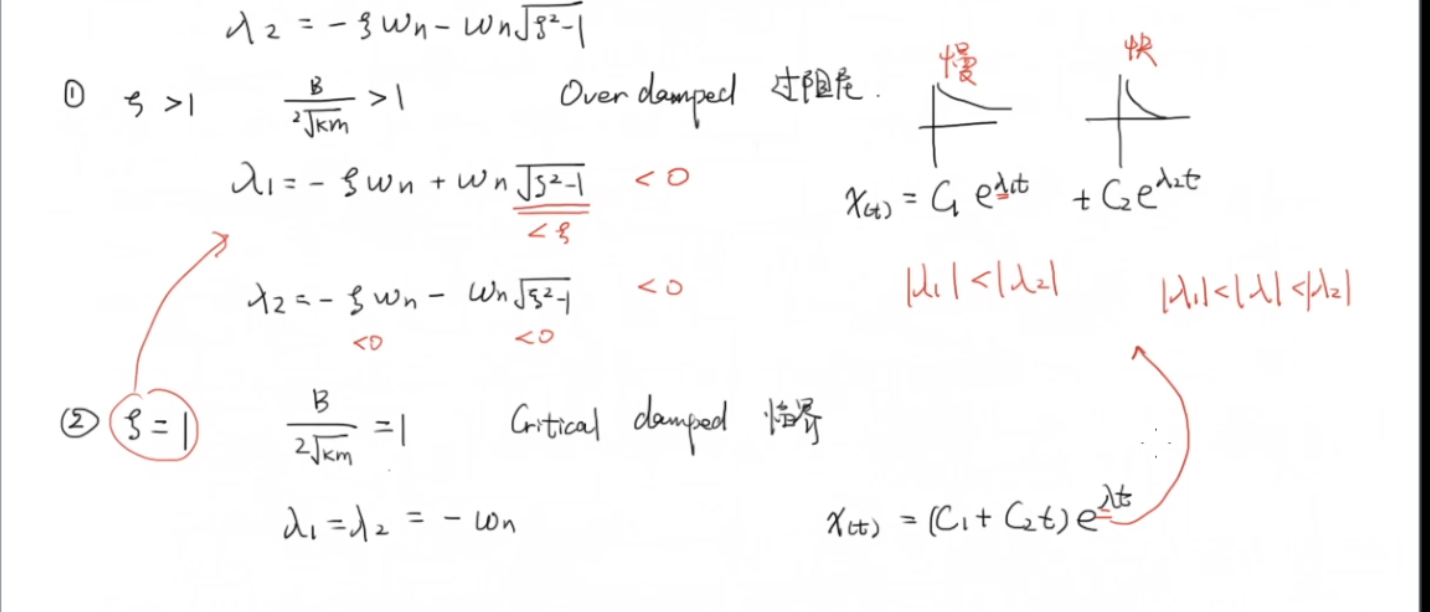 λ₂ = - ξωn - ωn√(ξ²-1)
慢 快
① ξ > 1 B/(2√km) > 1 Over damped 过阻尼.
λ₁ = - ξωn + ωn√(ξ²-1) < 0
< ξ
x(t) = C₁e^(λ₁t) + C₂e^(λ₂t)
λ₂ = - ξωn - ωn√(ξ²-1) < 0
<0 <0
|λ₁| < |λ₂| |λ₁| < |λ| < |λ₂|
② ξ = 1 B/(2√km) = 1 Critical damped
λ₁ = λ₂ = - ωn
x(t) = (C₁ + C₂t)e^(λt)